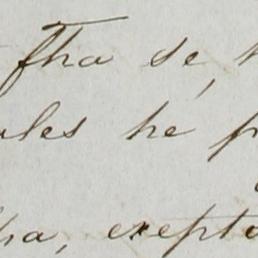 Fha se,
ules he p
pa, exepto